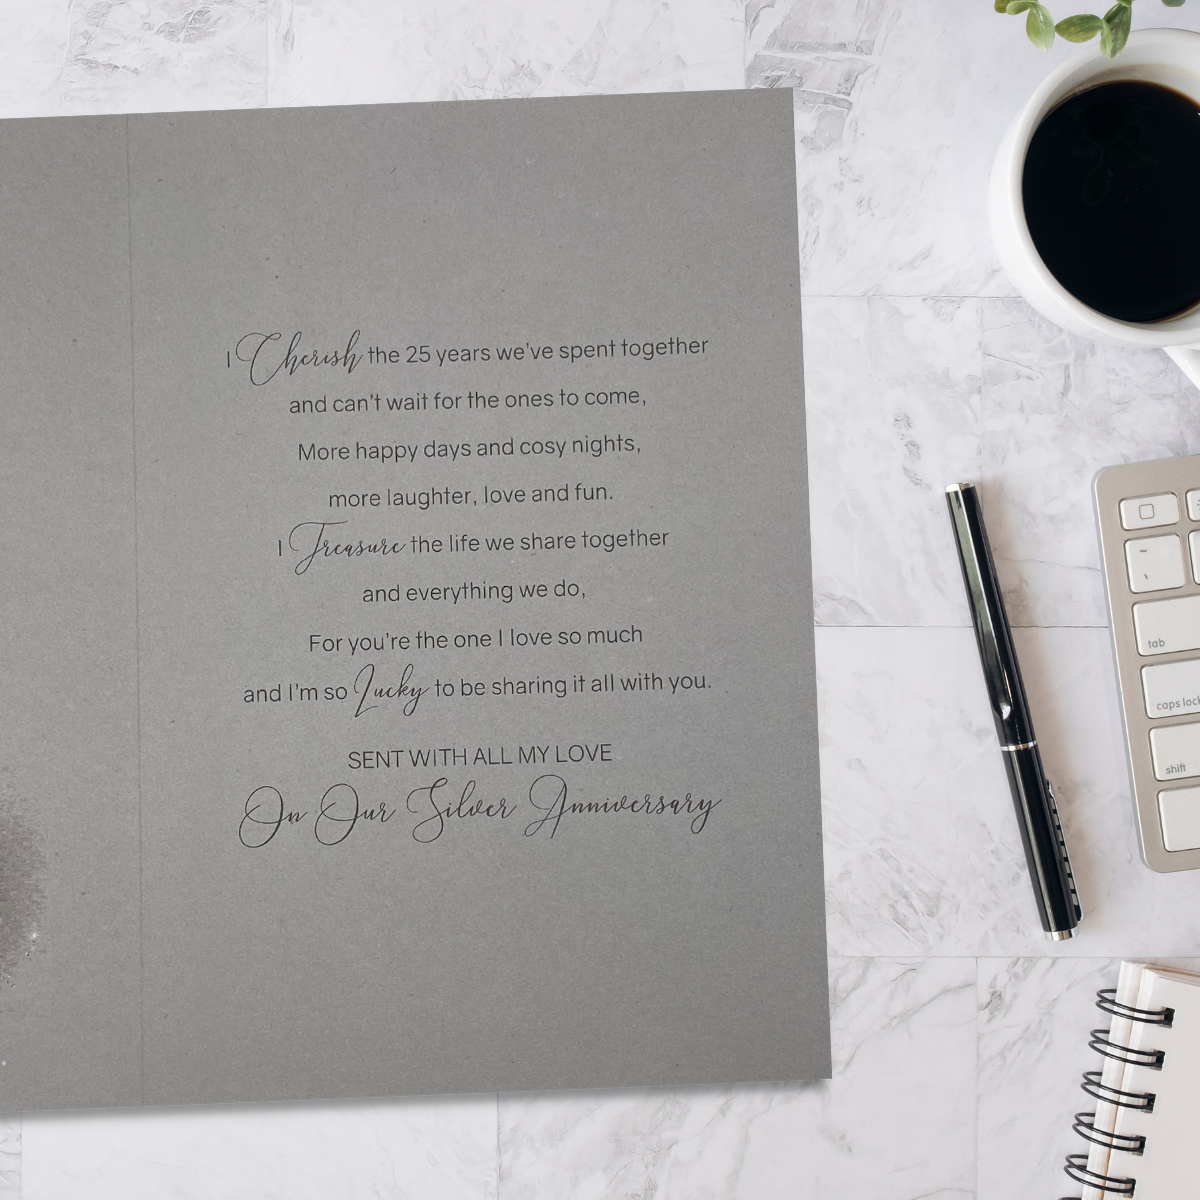 I Cherish the 25 years we've spent together
and can't wait for the ones to come,
More happy days and cosy nights,
more laughter, love and fun.
I Treasure the life we share together
and everything we do,
For you're the one I love so much
and I'm so Lucky to be sharing it all with you.
SENT WITH ALL MY LOVE
On Our Silver Anniversary
~
tab
caps lock
shift